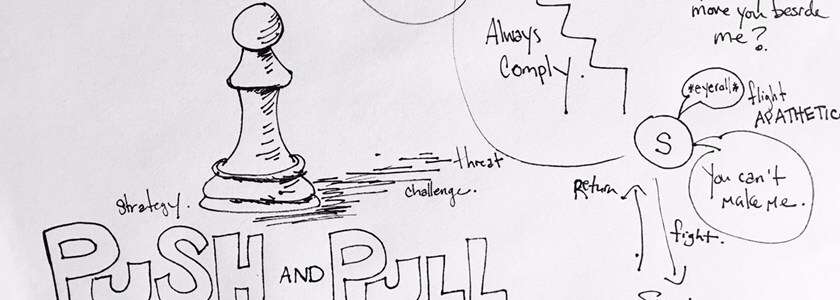 move you beside
me?
Always
Comply.
*eyeroll*
flight
APATHETIC
S
threat
You can't
make me.
challenge.
Return
strategy.
fight.
PUSH AND PULL